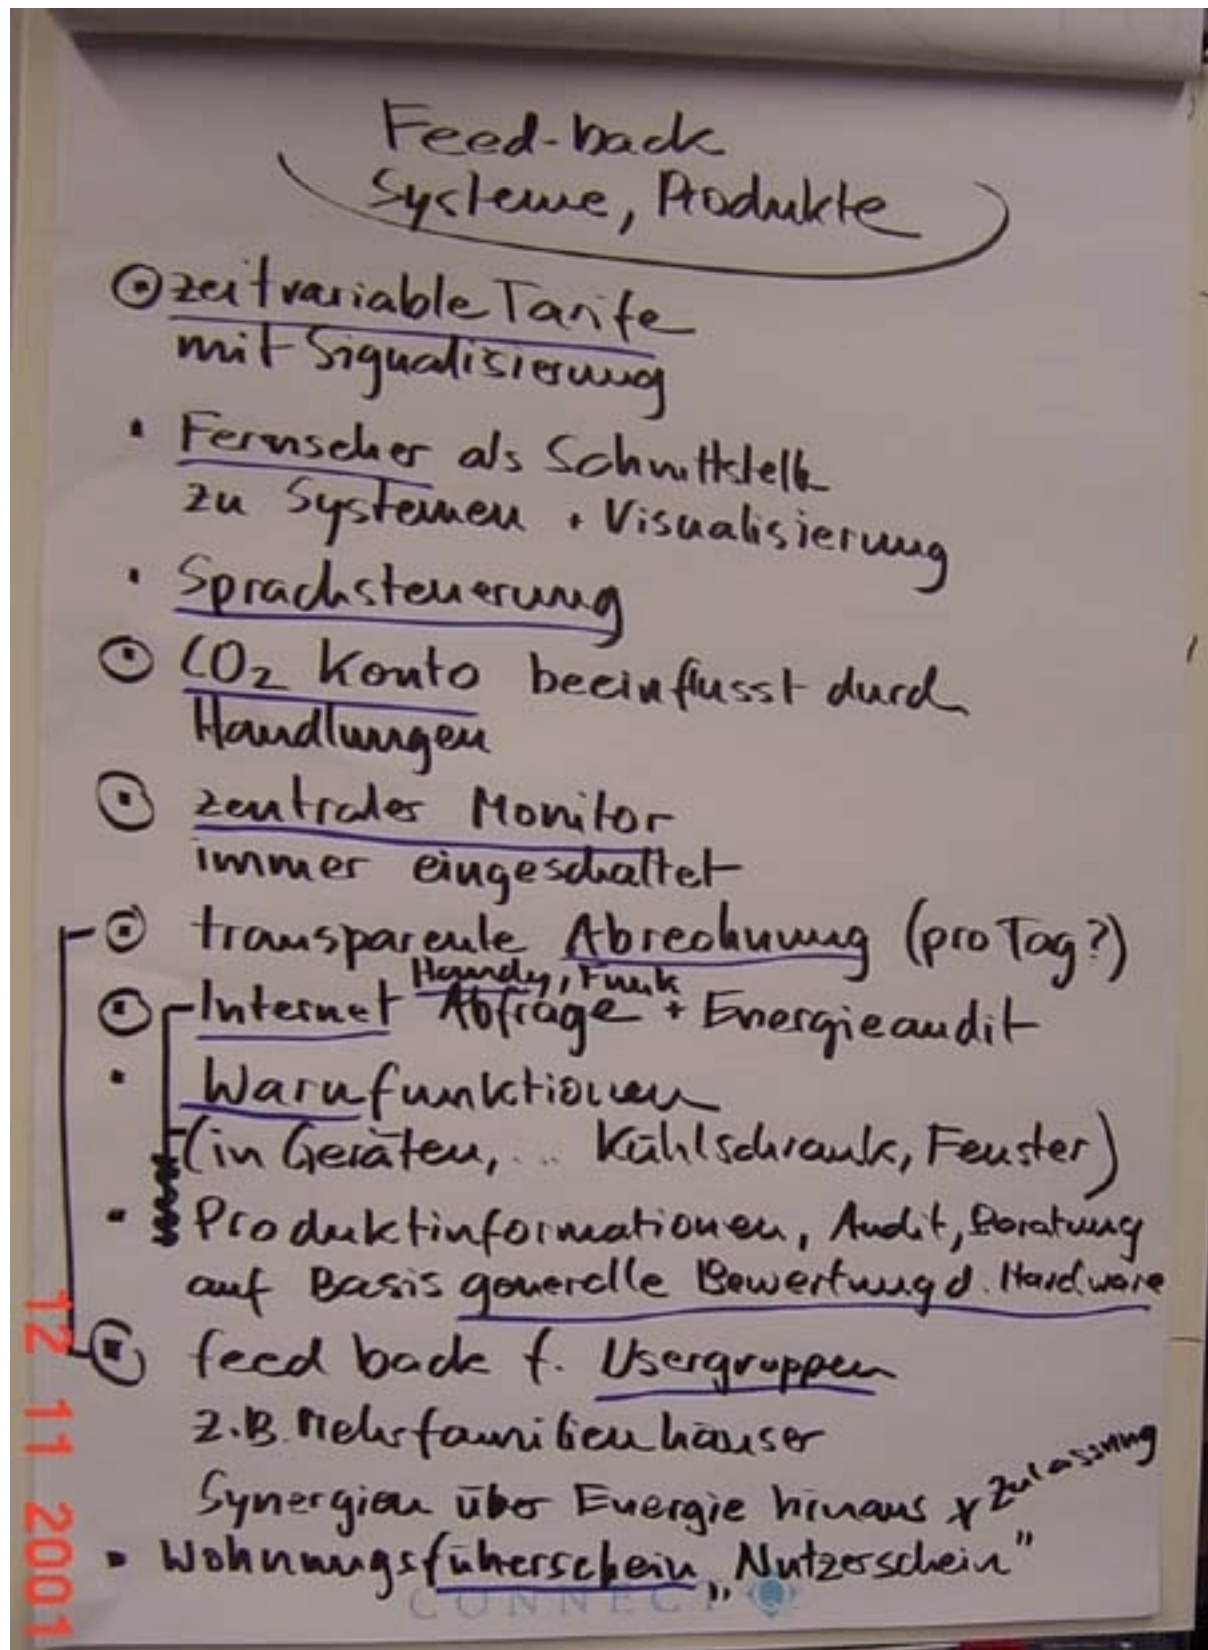 Feed-back
Systeme, Produkte
zeitvariable Tarife
mit Signalisierung
Fernseher als Schnittstelle
zu Systemen + Visualisierung
Sprachsteuerung
CO2 Konto beeinflusst durch
Handlungen
zentraler Monitor
immer eingeschaltet
transparente Abrechnung (pro Tag?)
Handy, Funk
Internet Abfrage + Energieaudit
Warnfunktionen
(in Geräten, ... Kühlschrank, Fenster)
Produktinformationen, Audit, Beratung
auf Basis generelle Bewertung d. Hardware
feed back f. Usergruppen
z.B. Mehrfamilienhäuser
Synergien über Energie hinaus x Zulassung
Wohnungsführerschein „Nutzerschein"
CONNECT
12 11 2001